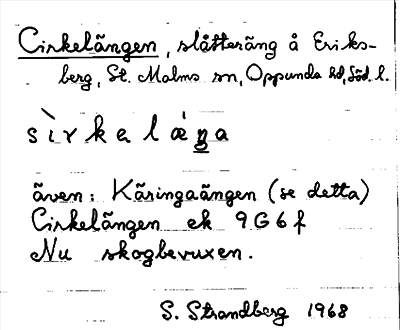 Cirkelängen, slåtteräng å Eriks-
berg, St. Malms sn, Oppunda hd, Söd. l.
sìrkelæ̀ŋa
även: Käringaängen (se detta)
Cirkelängen ek 9G6f
Nu skogbevuxen.
S. Strandberg 1968